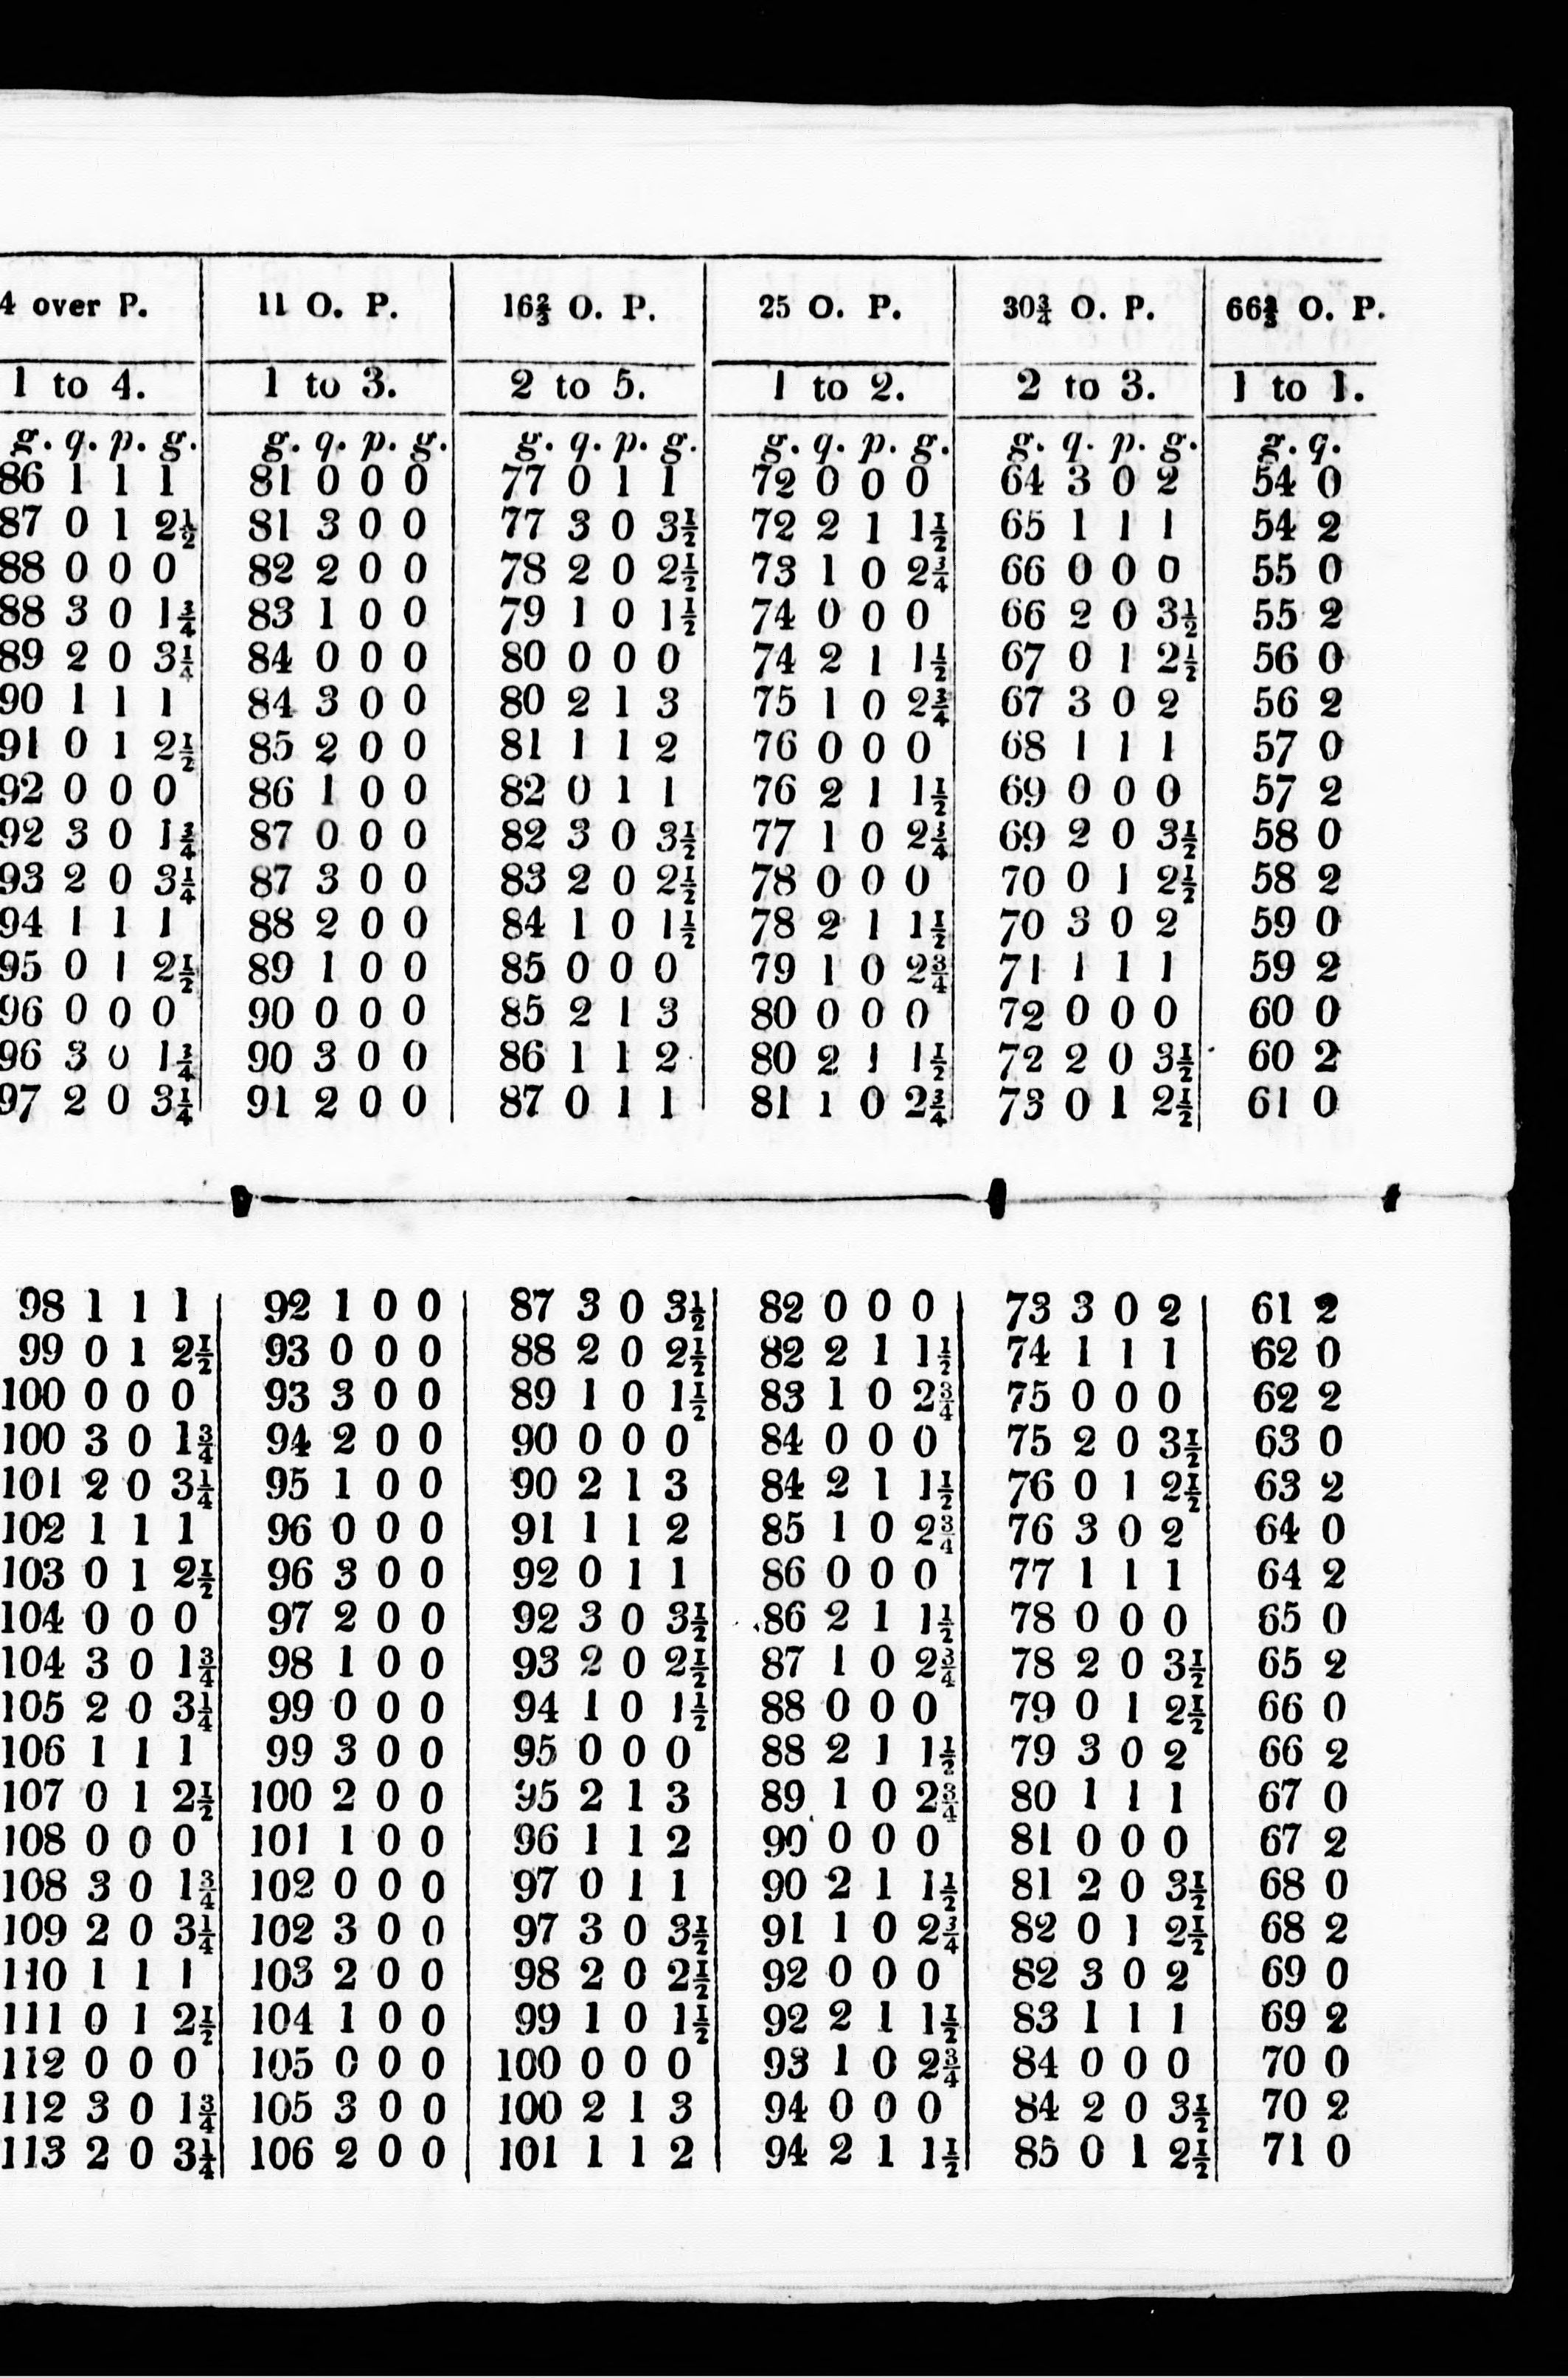 4 over P. 11 O. P. 16⅔ O. P. 25 O. P. 30¾ O. P. 66⅔ O. P.
1 to 4. 1 to 3. 2 to 5. 1 to 2. 2 to 3. 1 to 1.
g. q. p. g. g. q. p. g. g. q. p. g. g. q. p. g. g. q. p. g. g. q.
86 1 1 1 81 0 0 0 77 0 1 1 72 0 0 0 64 3 0 2 54 0
87 0 1 2½ 81 3 0 0 77 3 0 3½ 72 2 1 1½ 65 1 1 1 54 2
88 0 0 0 82 2 0 0 78 2 0 2½ 73 1 0 2¾ 66 0 0 0 55 0
88 3 0 1¾ 83 1 0 0 79 1 0 1½ 74 0 0 0 66 2 0 3½ 55 2
89 2 0 3¼ 84 0 0 0 80 0 0 0 74 2 1 1½ 67 0 1 2½ 56 0
90 1 1 1 84 3 0 0 80 2 1 3 75 1 0 2¾ 67 3 0 2 56 2
91 0 1 2½ 85 2 0 0 81 1 1 2 76 0 0 0 68 1 1 1 57 0
92 0 0 0 86 1 0 0 82 0 1 1 76 2 1 1½ 69 0 0 0 57 2
92 3 0 1¾ 87 0 0 0 82 3 0 3½ 77 1 0 2¾ 69 2 0 3½ 58 0
93 2 0 3¼ 87 3 0 0 83 2 0 2½ 78 0 0 0 70 0 1 2½ 58 2
94 1 1 1 88 2 0 0 84 1 0 1½ 78 2 1 1½ 70 3 0 2 59 0
95 0 1 2½ 89 1 0 0 85 0 0 0 79 1 0 2¾ 71 1 1 1 59 2
96 0 0 0 90 0 0 0 85 2 1 3 80 0 0 0 72 0 0 0 60 0
96 3 0 1¾ 90 3 0 0 86 1 1 2 80 2 1 1½ 72 2 0 3½ 60 2
97 2 0 3¼ 91 2 0 0 87 0 1 1 81 1 0 2¾ 73 0 1 2½ 61 0
98 1 1 1 92 1 0 0 87 3 0 3½ 82 0 0 0 73 3 0 2 61 2
99 0 1 2½ 93 0 0 0 88 2 0 2½ 82 2 1 1½ 74 1 1 1 62 0
100 0 0 0 93 3 0 0 89 1 0 1½ 83 1 0 2¾ 75 0 0 0 62 2
100 3 0 1¾ 94 2 0 0 90 0 0 0 84 0 0 0 75 2 0 3½ 63 0
101 2 0 3¼ 95 1 0 0 90 2 1 3 84 2 1 1½ 76 0 1 2½ 63 2
102 1 1 1 96 0 0 0 91 1 1 2 85 1 0 2¾ 76 3 0 2 64 0
103 0 1 2½ 96 3 0 0 92 0 1 1 86 0 0 0 77 1 1 1 64 2
104 0 0 0 97 2 0 0 92 3 0 3½ 86 2 1 1½ 78 0 0 0 65 0
104 3 0 1¾ 98 1 0 0 93 2 0 2½ 87 1 0 2¾ 78 2 0 3½ 65 2
105 2 0 3¼ 99 0 0 0 94 1 0 1½ 88 0 0 0 79 0 1 2½ 66 0
106 1 1 1 99 3 0 0 95 0 0 0 88 2 1 1½ 79 3 0 2 66 2
107 0 1 2½ 100 2 0 0 95 2 1 3 89 1 0 2¾ 80 1 1 1 67 0
108 0 0 0 101 1 0 0 96 1 1 2 90 0 0 0 81 0 0 0 67 2
108 3 0 1¾ 102 0 0 0 97 0 1 1 90 2 1 1½ 81 2 0 3½ 68 0
109 2 0 3¼ 102 3 0 0 97 3 0 3½ 91 1 0 2¾ 82 0 1 2½ 68 2
110 1 1 1 103 2 0 0 98 2 0 2½ 92 0 0 0 82 3 0 2 69 0
111 0 1 2½ 104 1 0 0 99 1 0 1½ 92 2 1 1½ 83 1 1 1 69 2
112 0 0 0 105 0 0 0 100 0 0 0 93 1 0 2¾ 84 0 0 0 70 0
112 3 0 1¾ 105 3 0 0 100 2 1 3 94 0 0 0 84 2 0 3½ 70 2
113 2 0 3¼ 106 2 0 0 101 1 1 2 94 2 1 1½ 85 0 1 2½ 71 0